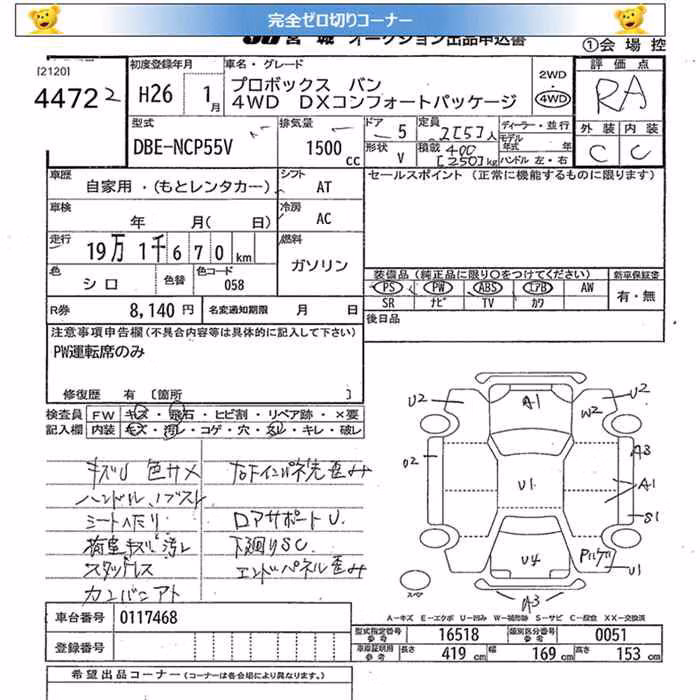 完全ゼロ切りコーナー
JU 宮 城 オークション出品申込書
①会 場 控
[2120]
4472 2
初度登録年月
H26 1月
車名・グレード
プロボックス バン
4WD DXコンフォートパッケージ
2WD
・
4WD
評 価 点
RA
外 装 内 装
C C
型式
DBE-NCP55V
排気量
1500 cc
ドア 5
形状 V
定員 2[5]人
積載 400
[250]kg
ディーラー・並行
モデル
年式 年
ハンドル 左・右
車歴
自家用 ・(もとレンタカー)
シフト
AT
セールスポイント (正常に機能するものに限ります)
車検
年 月( 日)
冷房
AC
走行
19万 1千670km
燃料
ガソリン
色
シロ
色替
色コード
058
装備品(純正品に限り○をつけてください)
新車保証書
PS PW ABS エアB AW
SR ナビ TV カワ
有・無
R券 8,140 円
名変通知期限 月 日
後日品
注意事項申告欄(不具合内容等は具体的に記入して下さい)
PW運転席のみ
修復歴 有 [箇所 ]
検査員 FW キズ・飛石・ヒビ割・リペア跡・×要
記入欄 内装 キズ・汚レ・コゲ・穴・スレ・キレ・破レ
キズU 色サメ
ハンドル、ノブスレ
シートヘたり
荷室キズU汚レ
スタッドレス
カンバンアト
右Fインパネ先歪み
ロアサポートU
下廻りSC
エンドパネル歪み
U2 A1 U2
W2
U2 A3
U1 A1
S1
U4 U1
A3
スペア
A-キズ E-エクボ U-凹み W-補修跡 S-サビ C-腐食 XX-交換済
車台番号 0117468
登録番号
型式指定番号
参考
16518
類別区分番号
参考
0051
車庫証明用
参考
長さ 419 cm
幅 169 cm
高さ 153 cm
希望出品コーナー(コーナーは各会場により異なります。)